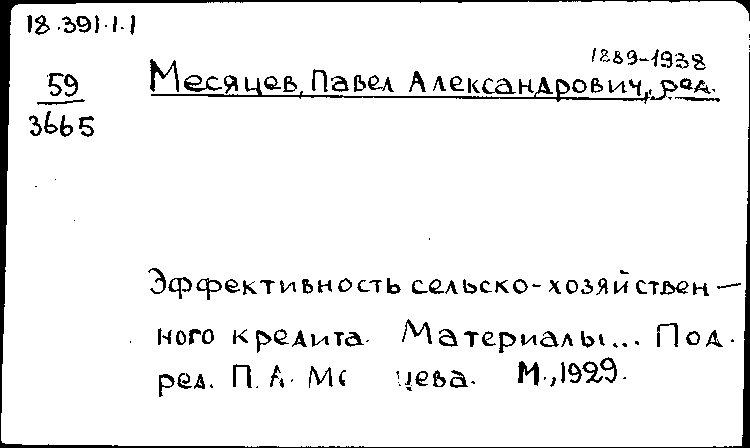 18.391.1.1
1889-1938
59
3665
Месяцев, Павел Александрович, ред.
Эффективность сельско-хозяйствен-
ного кредита. Материалы... Под.
ред. П. А. М цева. М., 1929.